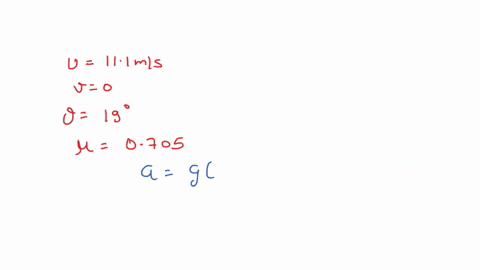 u = 11.1 m/s
v = 0
θ = 19°
μ = 0.705
a = g(